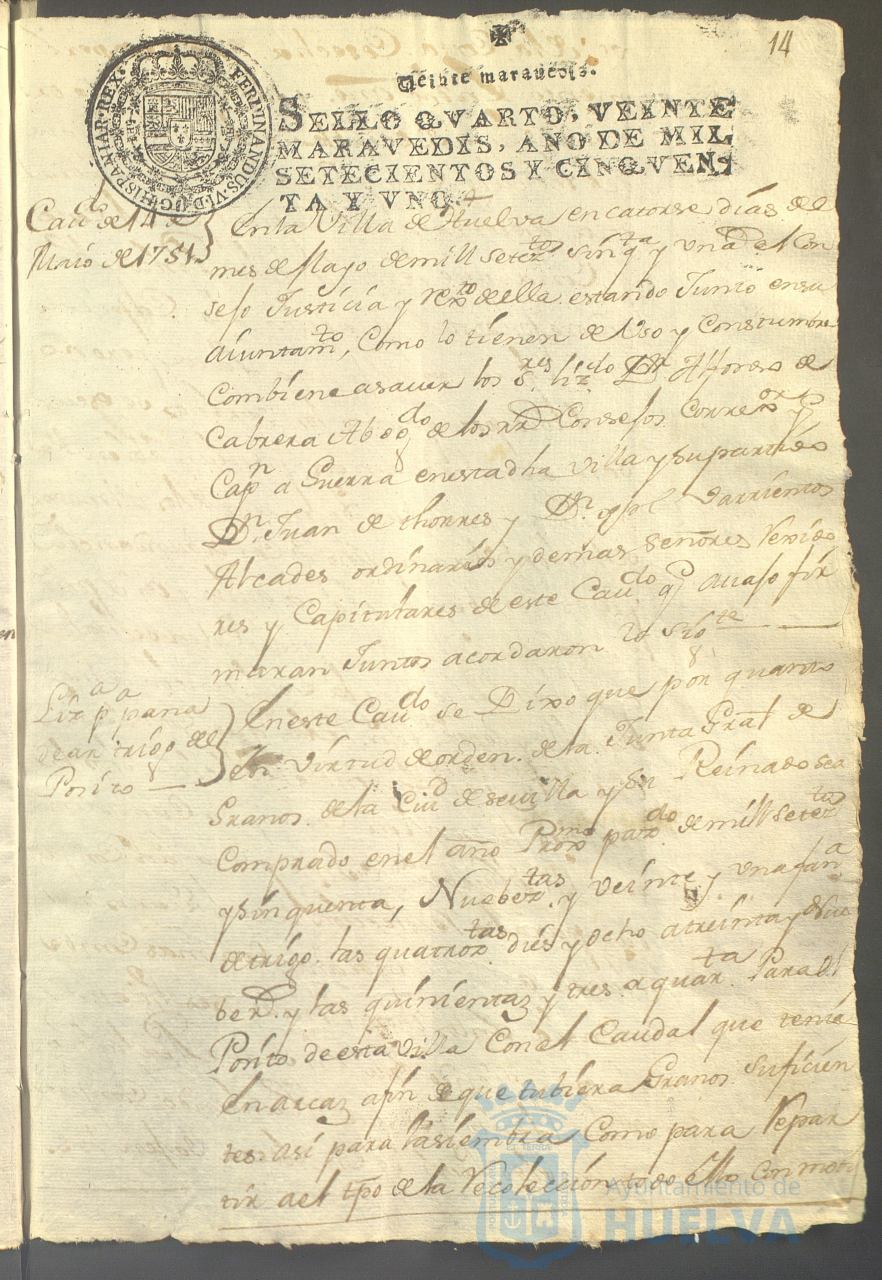 14
Veinte maravedis.
SELLO QVARTO, VEINTE
MARAVEDIS, AÑO DE MIL
SETECIENTOS Y CINQVEN-
TA Y VNO.
FERDINANDUS·VI·D·G·HISPANIAR·REX·
Cavdo de 14 de
Maio de 1751
En la Villa de Huelva en catorse días del
mes de Mayo de mill setezto sinqta y un a el Con
sejo Justicia y rexto de ella estando Junto en su
aiuntamto, Como lo tienen de Uso y Constumbre
Combiene a saver los sres lizdo Dn Alfonso de
Cabrera Abogdo de los rrs Consejos Correor y
Capn a Guerra en esta dha villa y su partido
Dn Juan de thorres y Dn Barrientos
Alcades ordinarios y demas señores Rexido
res y Capitulares de este Cavdo q avajo fir
maran Juntos acordaron lo sigte
Lizª pª pana
dear trigo del
Posito
En este Cavdo se Dixo que por quanto
En Virtud de orden de la Junta Gral de
Granos de la Ciud de sevilla y su Reinado se a
Comprado en el año Proxmo pasdo de mill setezto
y sinquenta, Nuebeztas y veinte y una fana
de trigo las quatroztas dies y ocho a treinta y Nue
be rs y las quinientas y tres a quarta Para el
Posito de esta villa Con el Caudal que tenía
En arcaz afin de que tubiera Granos suficien
tes así para la siembra Como para Repar
tir a el tpo de la Recolección todo ello Con moti
Ayuntamiento de
HUELVA